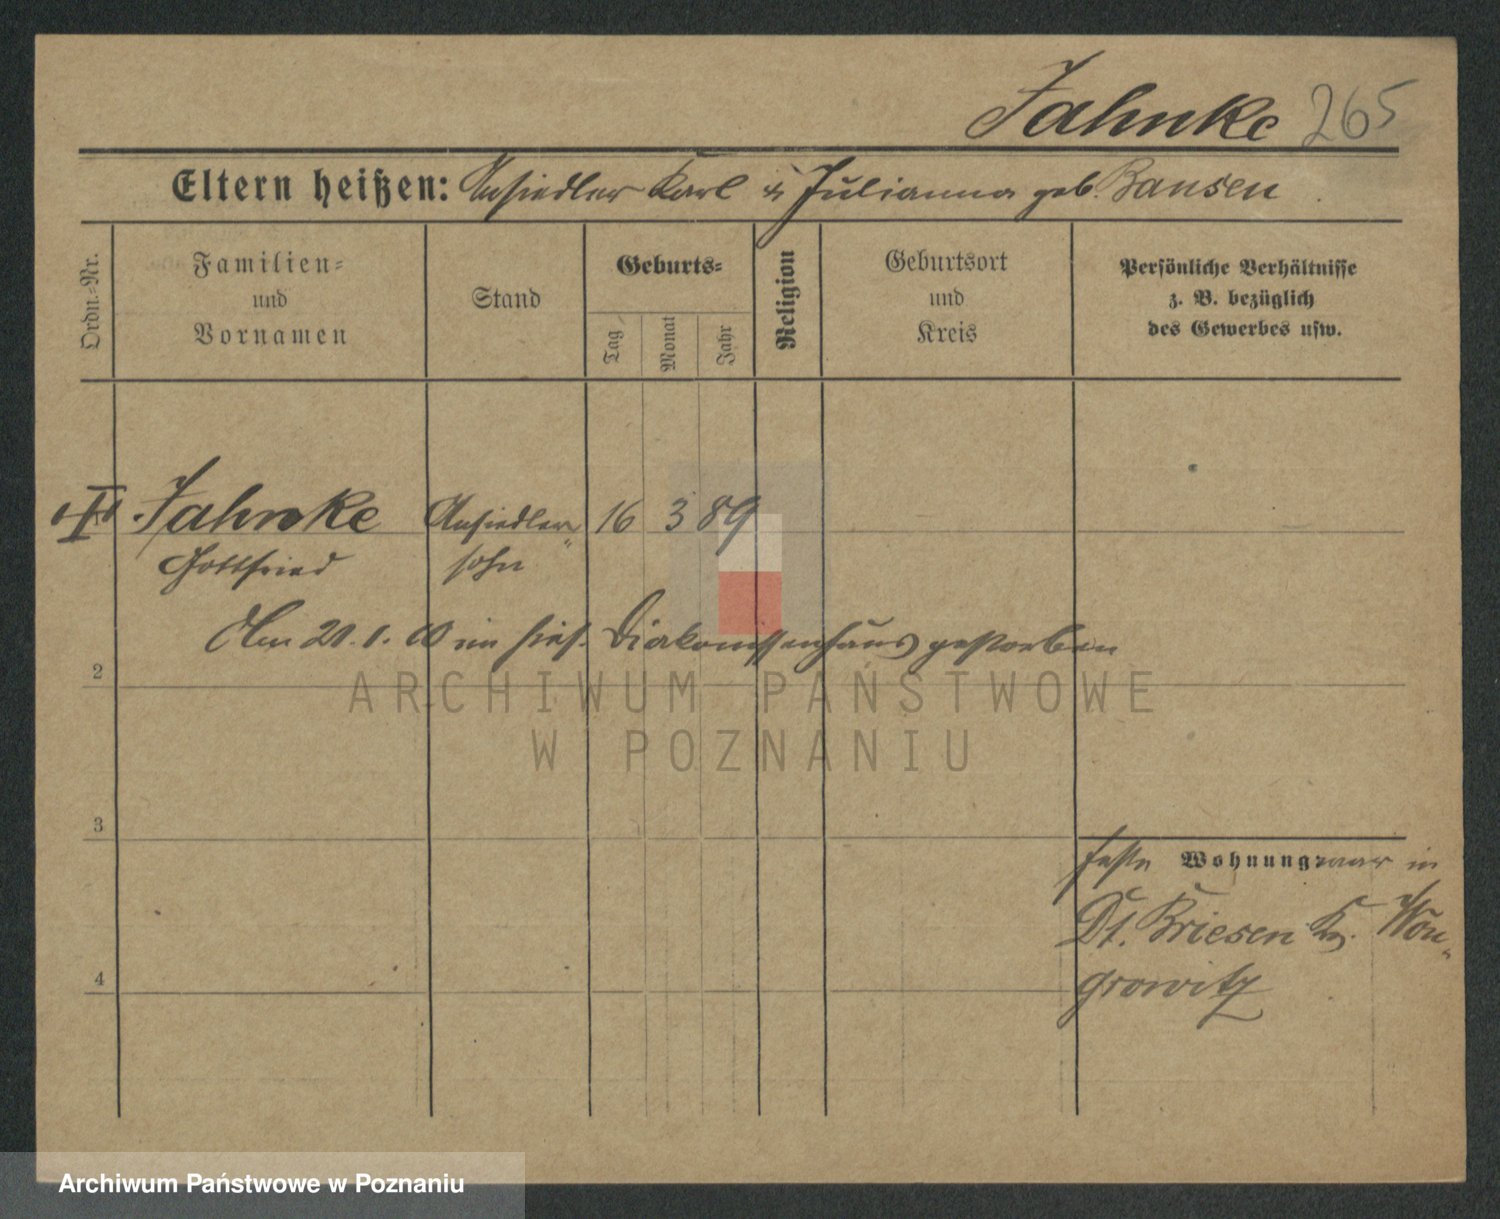 Jahnke 265
Eltern heißen: Ansiedler Karl u Julianna geb. Bansen
Ordn.-Nr.
Familien- und Vornamen
Stand
Geburts-
Tag
Monat
Jahr
Religion
Geburtsort und Kreis
Persönliche Verhältnisse z. B. bezüglich des Gewerbes usw.
Jahnke Ansiedler- 16 3 89
Gottfried sohn
Am 21. 1. im hies. Diakonissenhaus gestorben
2
3
4
feste Wohnung war in
Dt. Briesen Kr. Won-
growitz
ARCHIWUM PAŃSTWOWE
W POZNANIU
Archiwum Państwowe w Poznaniu